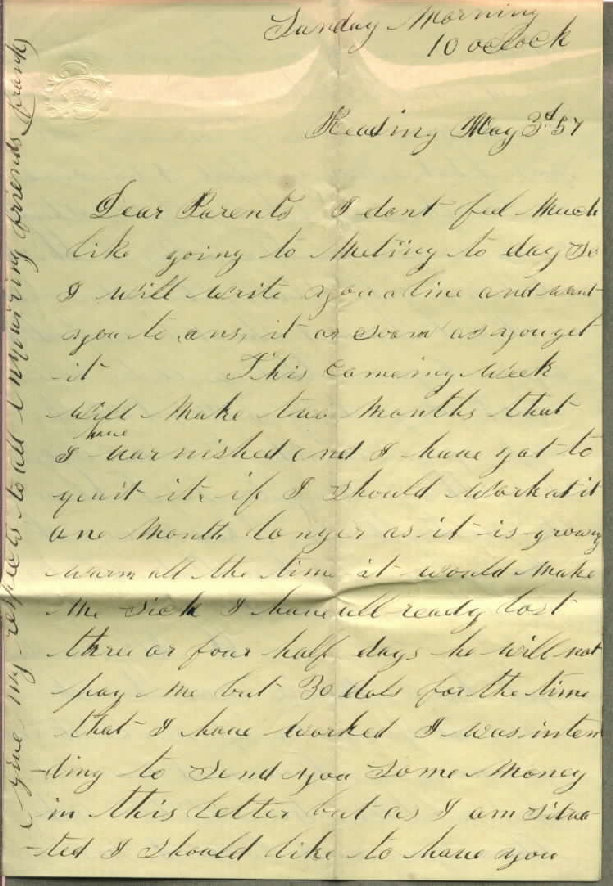 Sunday Morning
10 oclock
Reading May 3d 57
Dear Parents I dont feel Much
like going to Meting to day so
I will write you a line and want
you to ans, it as soom as you get
it This Comeing Week
Will Make two Months that
I have varnished and I have got to
qu​it it, if I should work at it
one Month longer as it is growing
warm all the time it would Make
Me sick I have all ready lost
thre or four half days he will not
pay Me but 30 dols for the time
that I have worked I was inten
-ding to send you some Money
in this letter but as I am situa
-ted I should like to have you
give My respects to all enquiring friends Frank